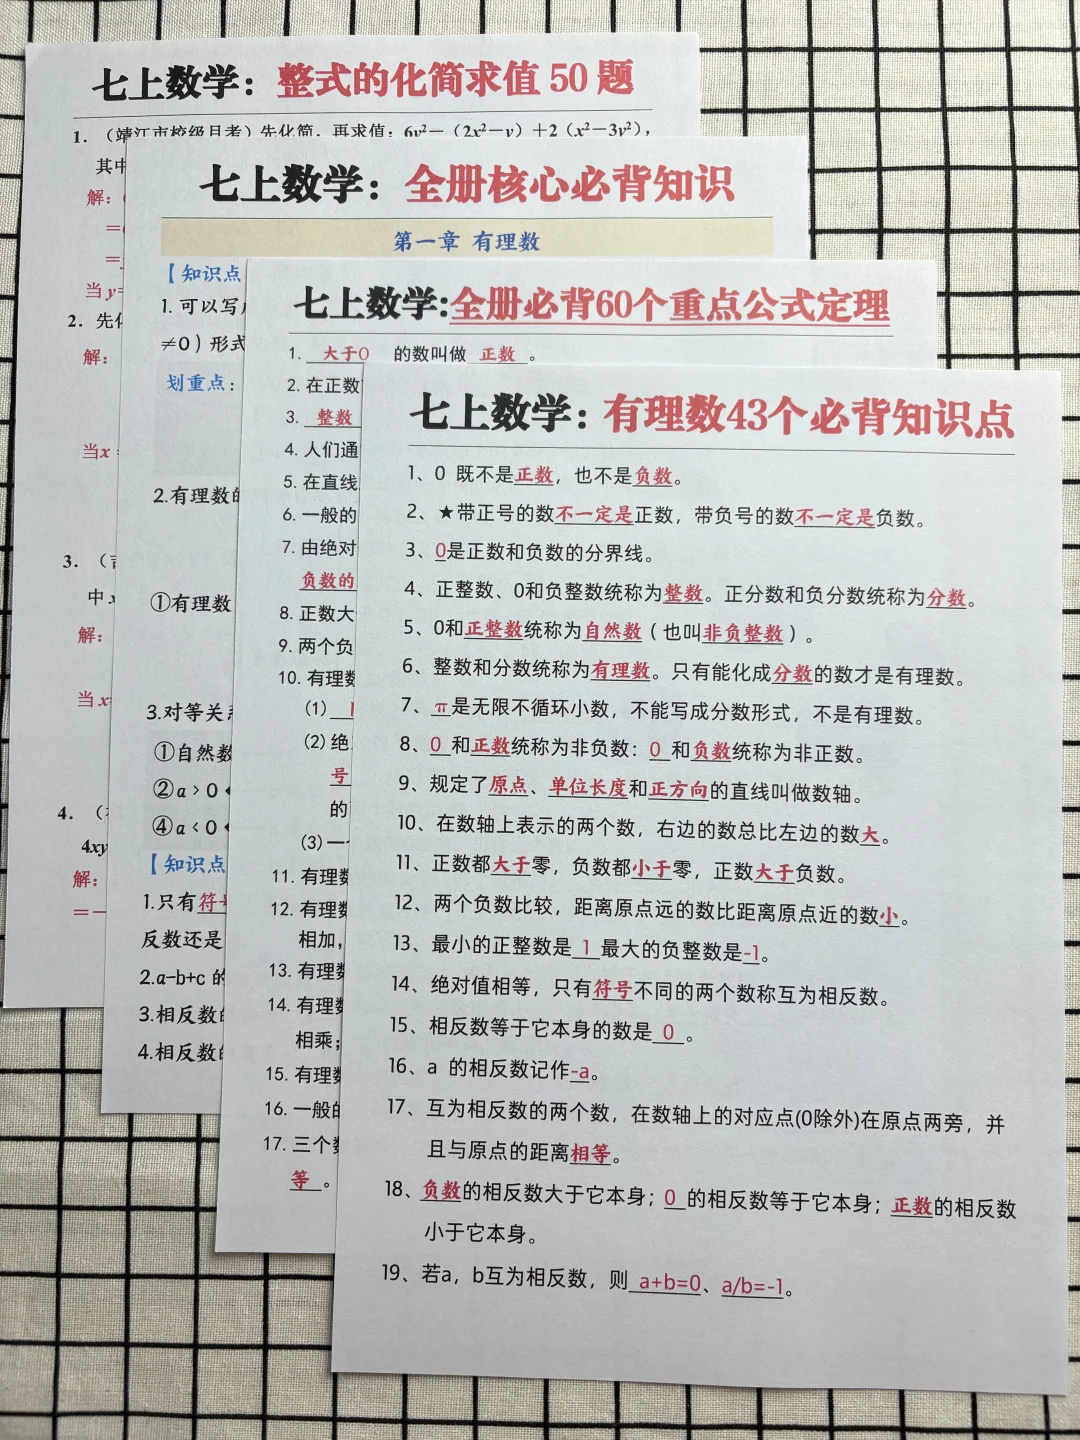 七上数学：整式的化简求值 50 题
1. （靖江市校级月考）先化简，再求值：6y²－（2x²－y）＋2（x²－3y²），
其中
解：
＝
＝
当y＝
2. 先化
解：
当x
3.
中x
解：
当x
4.
4xy
解：
＝－
七上数学：全册核心必背知识
第一章 有理数
【知识点
1. 可以写
≠0）形式
划重点：
2.有理数的
①有理数
3.对等关系
①自然数
②a＞0
④a＜0
【知识点
1.只有符号
反数还是
2.a-b+c 的
3.相反数的
4.相反数的
七上数学:全册必背60个重点公式定理
1. 大于0 的数叫做 正数 。
2. 在正数
3. 整数
4. 人们通
5. 在直线
6. 一般的
7. 由绝对
负数的
8. 正数大
9. 两个负
10. 有理数
(1)
(2) 绝
号
的
(3) 一
11. 有理数
12. 有理数
相加，
13. 有理数
14. 有理数
相乘；
15. 有理数
16. 一般的
17. 三个数
等 。
七上数学：有理数43个必背知识点
1、0 既不是正数，也不是负数。
2、★带正号的数不一定是正数，带负号的数不一定是负数。
3、0是正数和负数的分界线。
4、正整数、0和负整数统称为整数。正分数和负分数统称为分数。
5、0和正整数统称为自然数（也叫非负整数）。
6、整数和分数统称为有理数。只有能化成分数的数才是有理数。
7、π是无限不循环小数，不能写成分数形式，不是有理数。
8、0 和正数统称为非负数：0 和负数统称为非正数。
9、规定了原点、单位长度和正方向的直线叫做数轴。
10、在数轴上表示的两个数，右边的数总比左边的数大。
11、正数都大于零，负数都小于零，正数大于负数。
12、两个负数比较，距离原点远的数比距离原点近的数小。
13、最小的正整数是 1 最大的负整数是-1。
14、绝对值相等，只有符号不同的两个数称互为相反数。
15、相反数等于它本身的数是 0 。
16、a 的相反数记作-a。
17、互为相反数的两个数，在数轴上的对应点(0除外)在原点两旁，并
且与原点的距离相等。
18、负数的相反数大于它本身；0 的相反数等于它本身；正数的相反数
小于它本身。
19、若a，b互为相反数，则 a+b=0、a/b=-1。